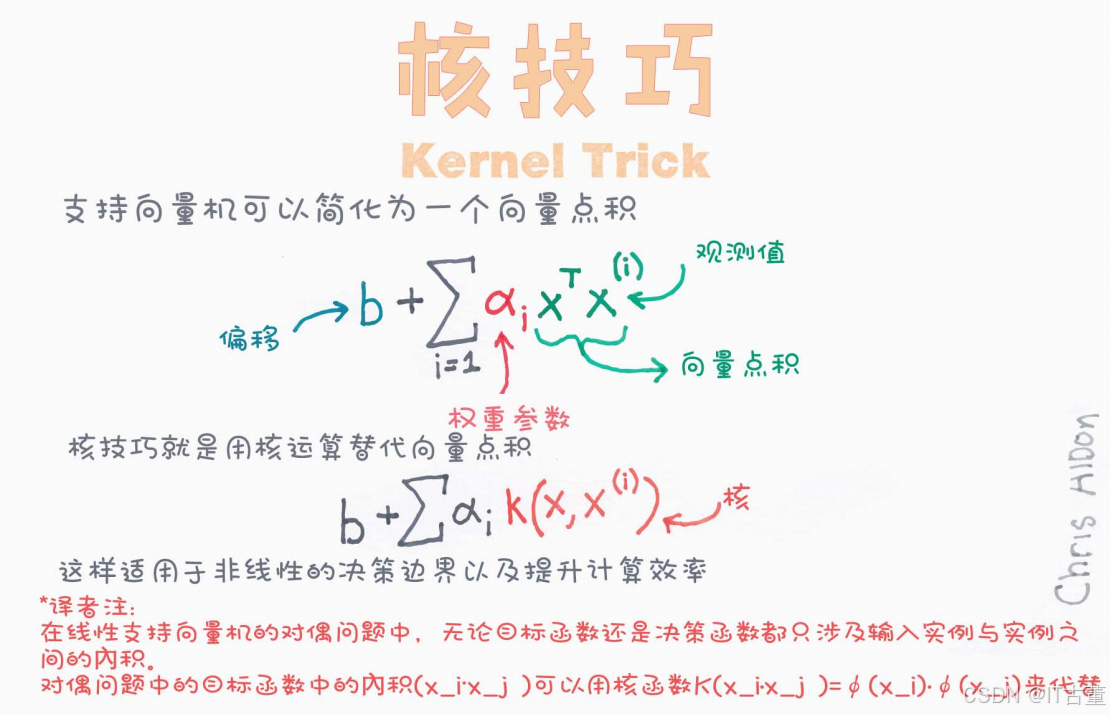 核技巧
Kernel Trick
支持向量机可以简化为一个向量点积
观测值
b + ∑ αᵢ xᵀ x⁽ⁱ⁾
i=1
偏移
向量点积
权重参数
核技巧就是用核运算替代向量点积
b + ∑ αᵢ K(x, x⁽ⁱ⁾)
核
这样适用于非线性的决策边界以及提升计算效率
Chris Albon
*译者注:
在线性支持向量机的对偶问题中，无论目标函数还是决策函数都只涉及输入实例与实例之
间的内积。
对偶问题中的目标函数中的内积(x_i·x_j )可以用核函数K(x_i·x_j )=ϕ(x_i)·ϕ(x_j)来代替
CSDN @IT古董